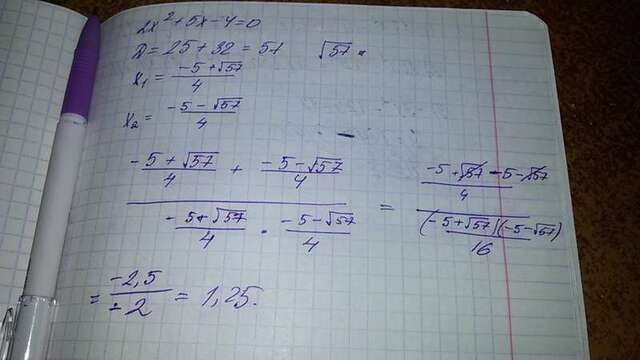 2x² + 5x - 4 = 0
D = 25 + 32 = 57 √57
x₁ = (-5 + √57)/4
x₂ = (-5 - √57)/4
((-5 + √57)/4 + (-5 - √57)/4) / ((-5 + √57)/4 · (-5 - √57)/4) = ((-5 + √57 - 5 - √57)/4) / ((-5 + √57)(-5 - √57)/16)
= -2,5/-2 = 1,25.